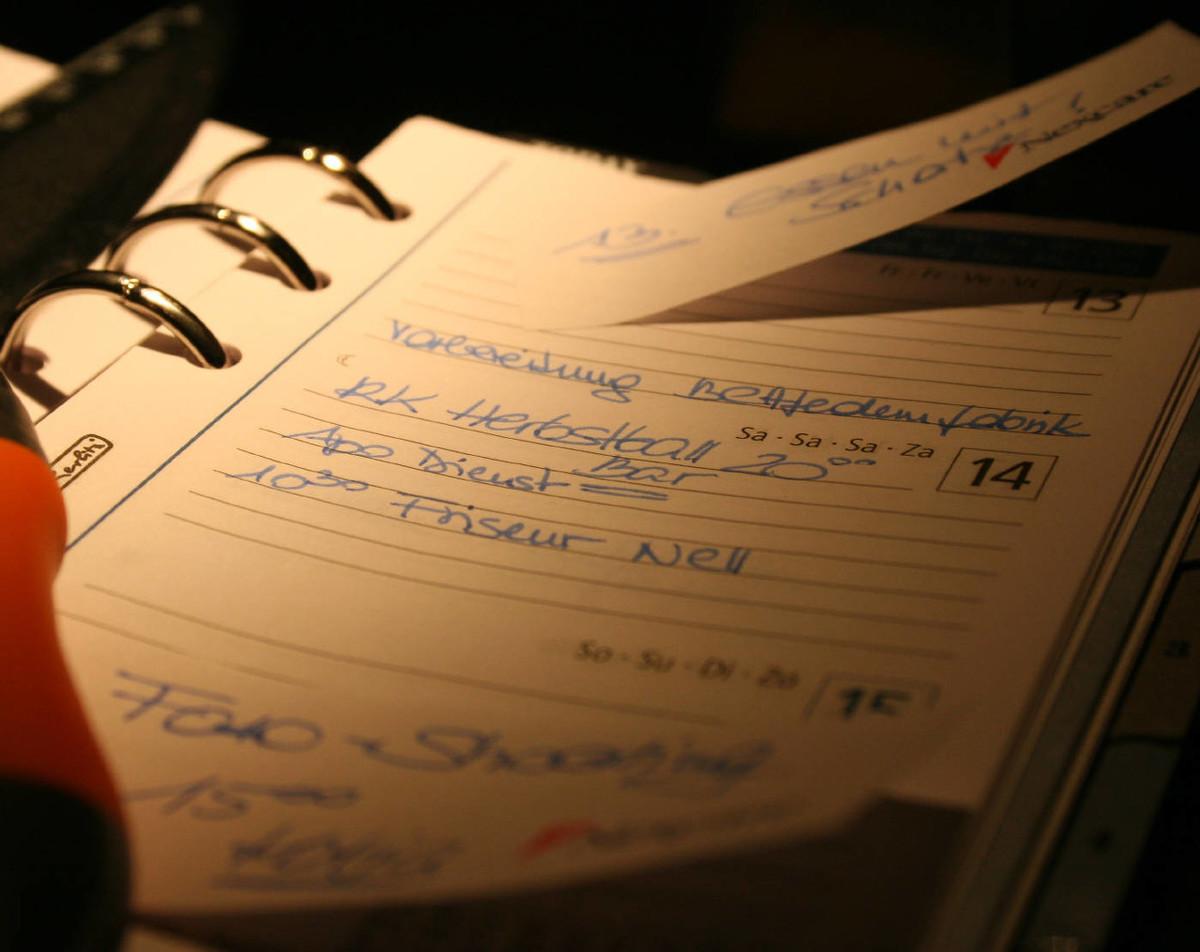 13.
Essen mit
Schatz
Fr · Fr · Ve · Vi 13
Vorbereitung Bettfedernfabrik
Sa · Sa · Sa · Za 14
RK Herbstball 20⁰⁰
Bar
Apo Dienst
10³⁰ Friseur Nell
So · Su · Di · Zo 15
Foto-Shooting
15⁰⁰